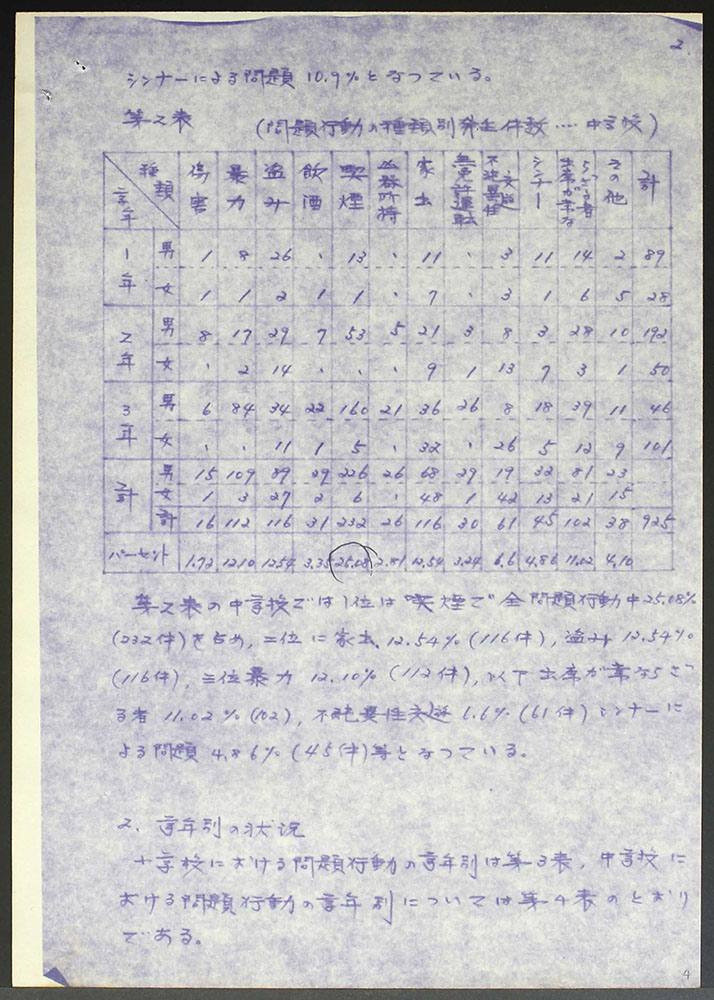 2.
シンナーによる問題 10.9%となつている。
第2表 (問題行動の種類別発生件数‥‥中学校)
種類 学年 傷害 暴力 盗み 飲酒 喫煙 凶器所持 家出 無免許運転 不純異性交遊 シンナー 出席が常ならざる者 その他 計
1年 男 1 8 26 、 13 、 11 、 3 11 14 2 89
女 1 1 2 1 1 、 7 、 3 1 6 5 28
2年 男 8 17 29 7 53 5 21 3 8 3 28 10 192
女 、 2 14 、 、 、 9 1 13 7 3 1 50
3年 男 6 84 34 22 160 21 36 26 8 18 39 11 46
女 、 、 11 1 5 、 32 、 26 5 12 9 101
計 男 15 109 89 29 226 26 68 29 19 32 81 23
女 1 3 27 2 6 、 48 1 42 13 21 15
計 16 112 116 31 232 26 116 30 61 45 102 38 925
パーセント 1.72 12.10 12.54 3.35 25.08 2.81 12.54 3.24 6.6 4.86 11.02 4.10
第2表の中学校では1位は喫煙で全問題行動中25.08%
(232件)を占め、二位に家出、12.54%(116件)、盗み 12.54%
(116件)、三位暴力 12.10%(112件)、以下出席が常ならざ
る者 11.02%(102)、不純異性交遊 6.6%(61件)シンナーに
よる問題 4.86%(45件)等となつている。
2. 学年別の状況
小学校における問題行動の学年別は第3表、中学校に
おける問題行動の学年別については第4表のとおり
である。
4